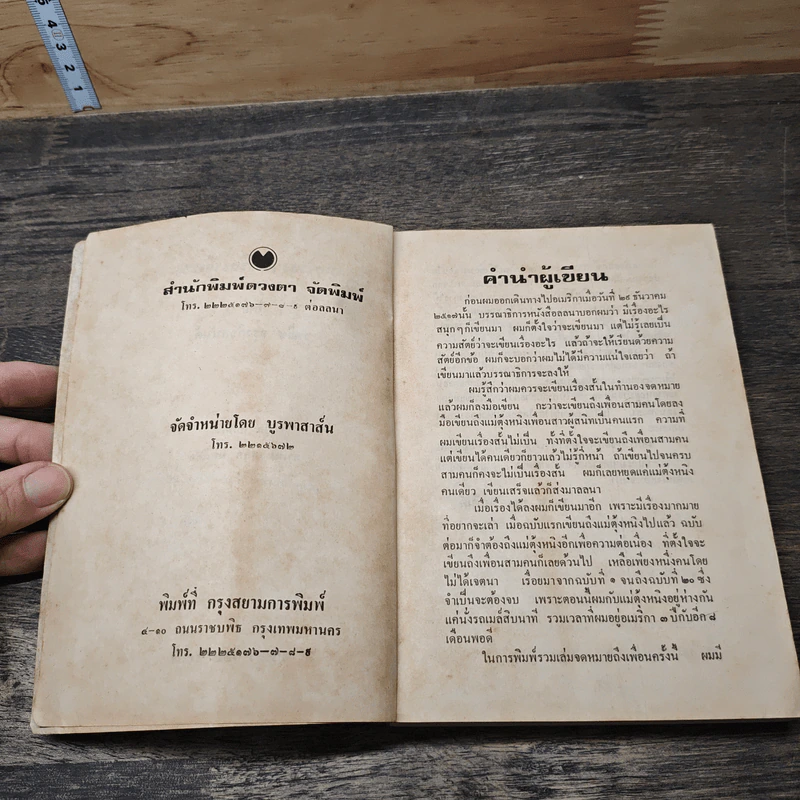 5
4
3
2
1
สำนักพิมพ์ดวงตา จัดพิมพ์
โทร. ๒๒๒๕๑๗๖-๗-๘-๙ ต่อลลนา
จัดจำหน่ายโดย บูรพาสาส์น
โทร. ๒๒๑๕๖๗๒
พิมพ์ที่ กรุงสยามการพิมพ์
๔-๑๐ ถนนราชบพิธ กรุงเทพมหานคร
โทร. ๒๒๒๕๑๗๖-๗-๘-๙
คำนำผู้เขียน
ก่อนผมออกเดินทางไปอเมริกาเมื่อวันที่ ๒๙ ธันวาคม
๒๕๑๗นั้น บรรณาธิการหนังสือลลนาบอกผมว่า มีเรื่องอะไร
สนุกๆก็เขียนมา ผมก็ตั้งใจว่าจะเขียนมา แต่ไม่รู้เลยเป็น
ความสัตย์ว่าจะเขียนเรื่องอะไร แล้วถ้าจะให้เรียนด้วยความ
สัตย์อีกข้อ ผมก็จะบอกว่าผมไม่ได้มีความแน่ใจเลยว่า ถ้า
เขียนมาแล้วบรรณาธิการจะลงให้
ผมรู้สึกว่าผมควรจะเขียนเรื่องสั้นในทำนองจดหมาย
แล้วผมก็ลงมือเขียน กะว่าจะเขียนถึงเพื่อนสามคนโดยลง
มือเขียนถึงแม่ตุ้งหนิงเพื่อนสาวผู้สนิทเป็นคนแรก ความที่
ผมเขียนเรื่องสั้นไม่เป็น ทั้งที่ตั้งใจจะเขียนถึงเพื่อนสามคน
แต่เขียนได้คนเดียวก็ยาวแล้วไม่รู้กี่หน้า ถ้าเขียนไปจนครบ
สามคนก็คงจะไม่เป็นเรื่องสั้น ผมก็เลยหยุดแค่แม่ตุ้งหนิง
คนเดียว เขียนเสร็จแล้วก็ส่งมาลลนา
เมื่อเรื่องได้ลงผมก็เขียนมาอีก เพราะมีเรื่องมากมาย
ที่อยากจะเล่า เมื่อฉบับแรกเขียนถึงแม่ตุ้งหนิงไปแล้ว ฉบับ
ต่อมาก็จำต้องถึงแม่ตุ้งหนิงอีกเพื่อความต่อเนื่อง ที่ตั้งใจจะ
เขียนถึงเพื่อนสามคนก็เลยด้วนไป เหลือเพียงหนึ่งคนโดย
ไม่ได้เจตนา เรื่อยมาจากฉบับที่ ๑ จนถึงฉบับที่ ๒๐ ซึ่ง
จำเป็นจะต้องจบ เพราะตอนนี้ผมกับแม่ตุ้งหนิงอยู่ห่างกัน
แค่นั่งรถเมล์สิบนาที รวมเวลาที่ผมอยู่อเมริกา ๓ ปีกับอีก ๘
เดือนพอดี
ในการพิมพ์รวมเล่มจดหมายถึงเพื่อนครั้งนี้ ผมมี